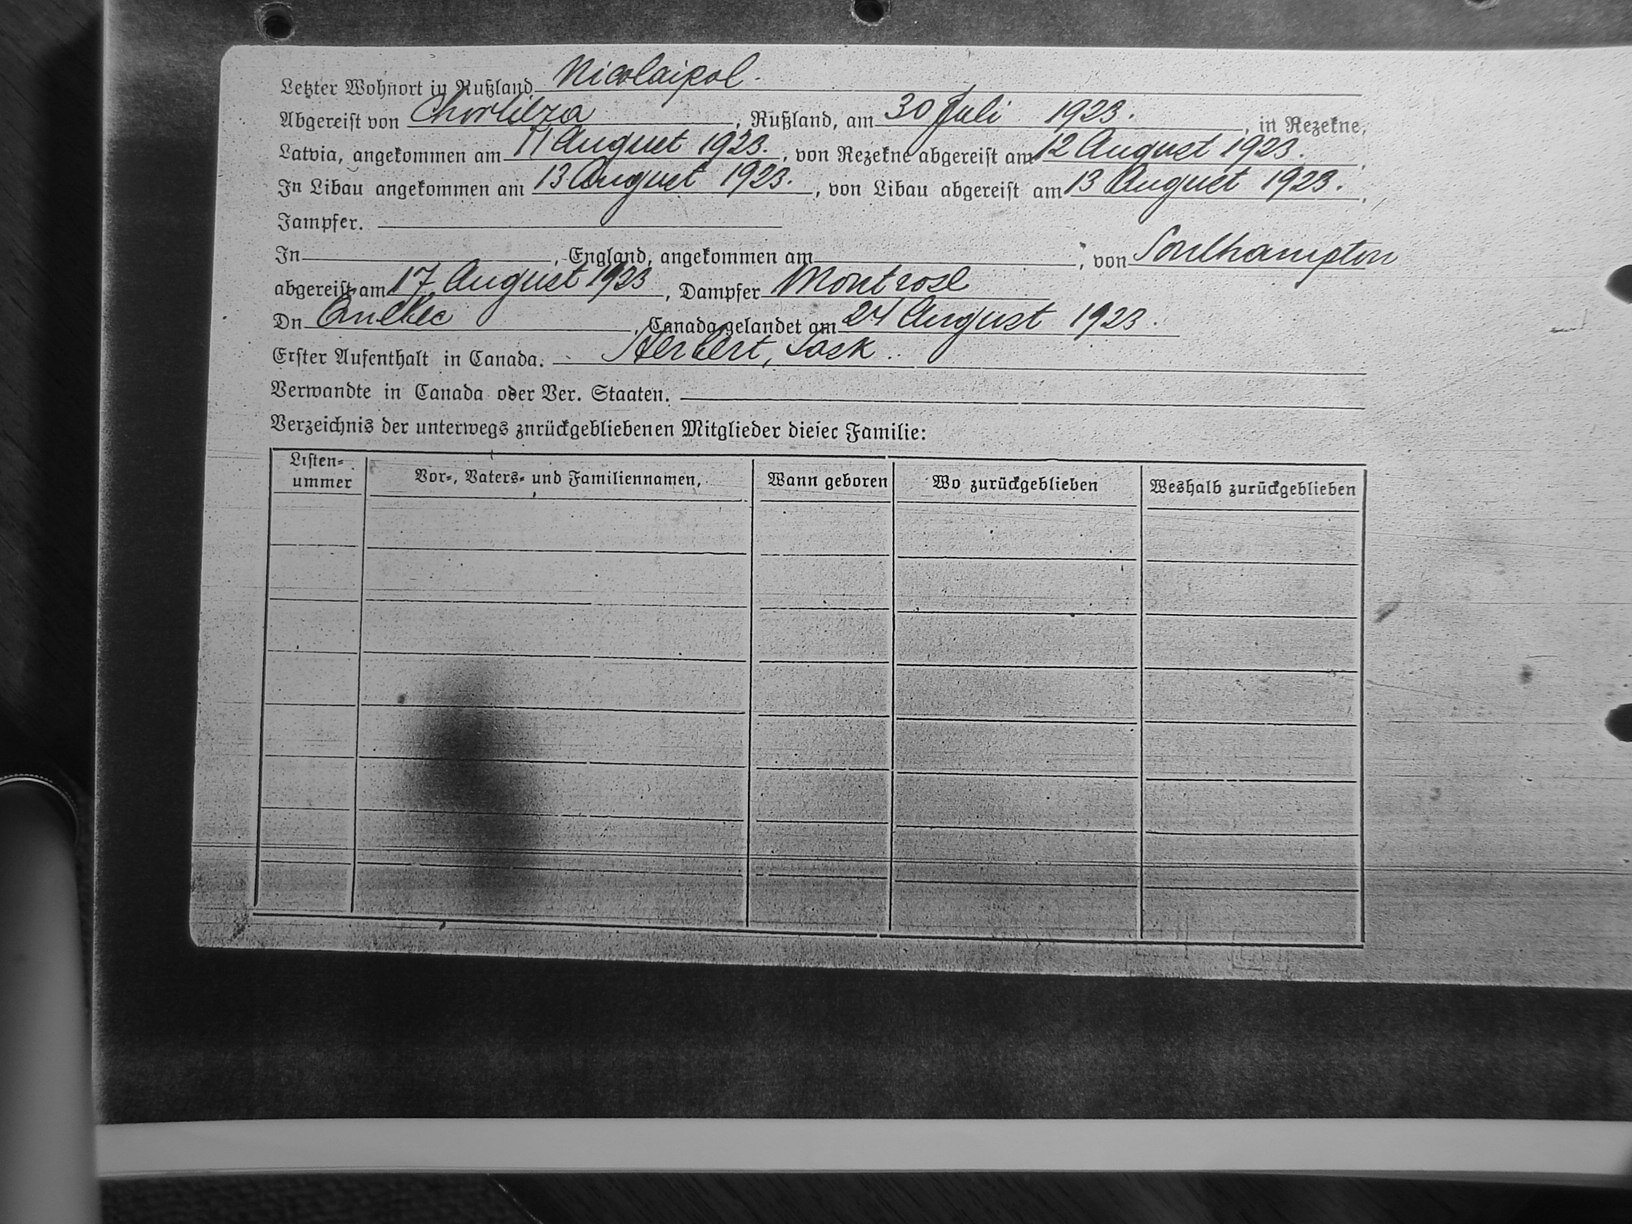 Letzter Wohnort in Rußland Nicolaipol.
Abgereist von Chortitza, Rußland, am 30 Juli 1923., in Rezekne,
Latvia, angekommen am 11 August 1923., von Rezekne abgereist am 12 August 1923.,
In Libau angekommen am 13 August 1923., von Libau abgereist am 13 August 1923.,
Jampfer.
In , England, angekommen am , von Southampton
abgereist am 17 August 1923, Dampfer Montrose
Dn Quebec, Canada gelandet am 24 August 1923.
Erster Aufenthalt in Canada. Herbert, Sask.
Verwandte in Canada oder Ver. Staaten.
Verzeichnis der unterwegs znrückgebliebenen Mitglieder diesec Familie:
Listen-
ummer
Vor-, Vaters- und Familiennamen,
Wann geboren
Wo zurückgeblieben
Weshalb zurückgeblieben